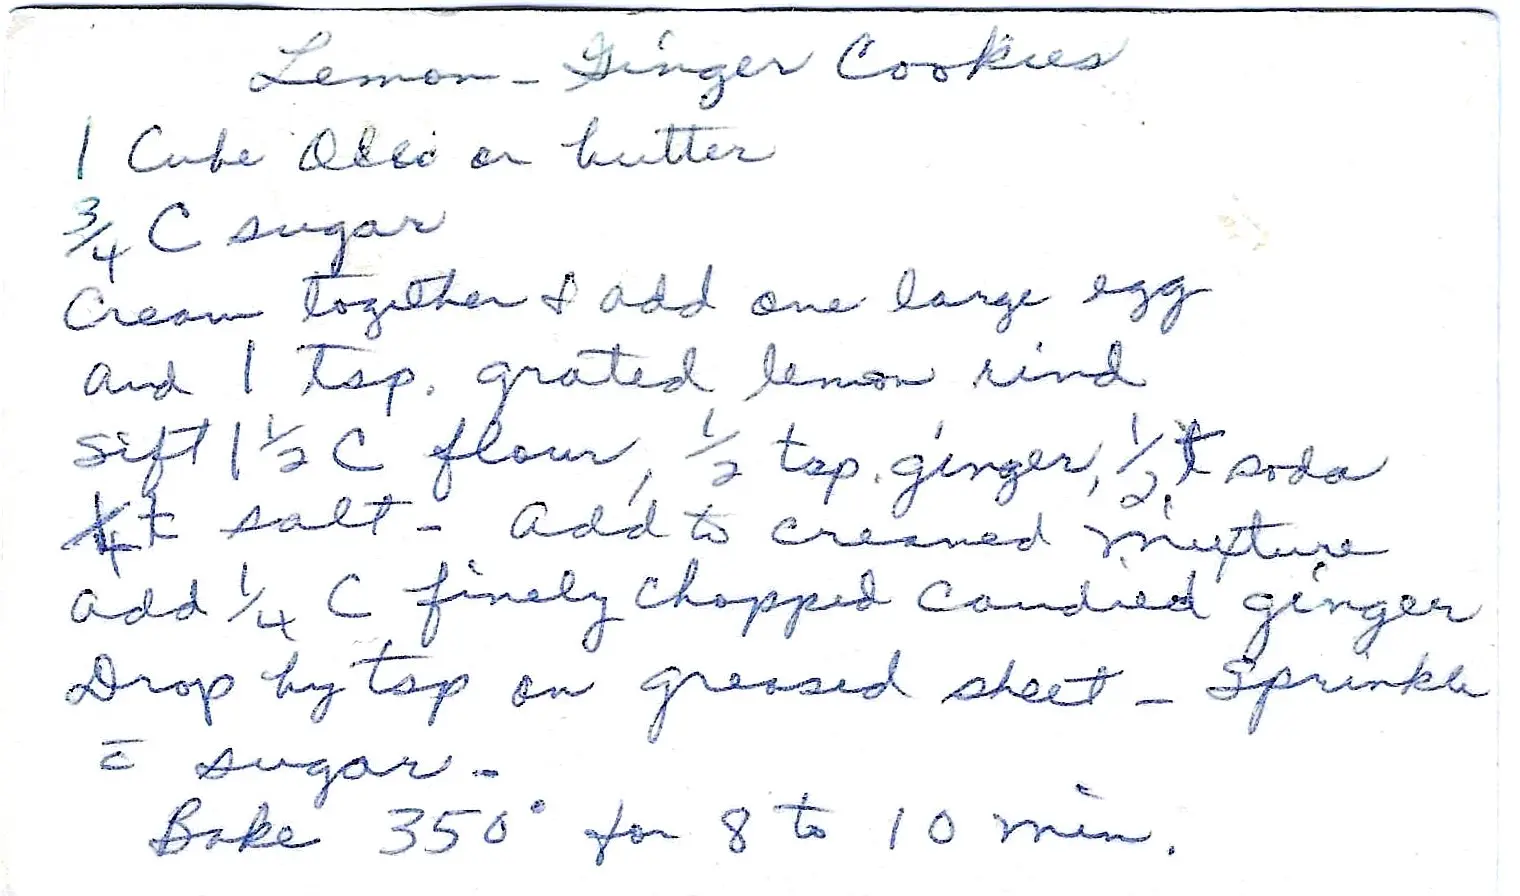 Lemon - Ginger Cookies
1 Cube Oleo or butter
3/4 C sugar
Cream together & add one large egg
and 1 tsp. grated lemon rind
Sift 1 1/2 C flour, 1/2 tsp. ginger, 1/2 t soda
1/4 t salt - add to creamed mixture
add 1/4 C finely chopped candied ginger
Drop by tsp on greased sheet - Sprinkle
c̄ sugar -
Bake 350° for 8 to 10 min.